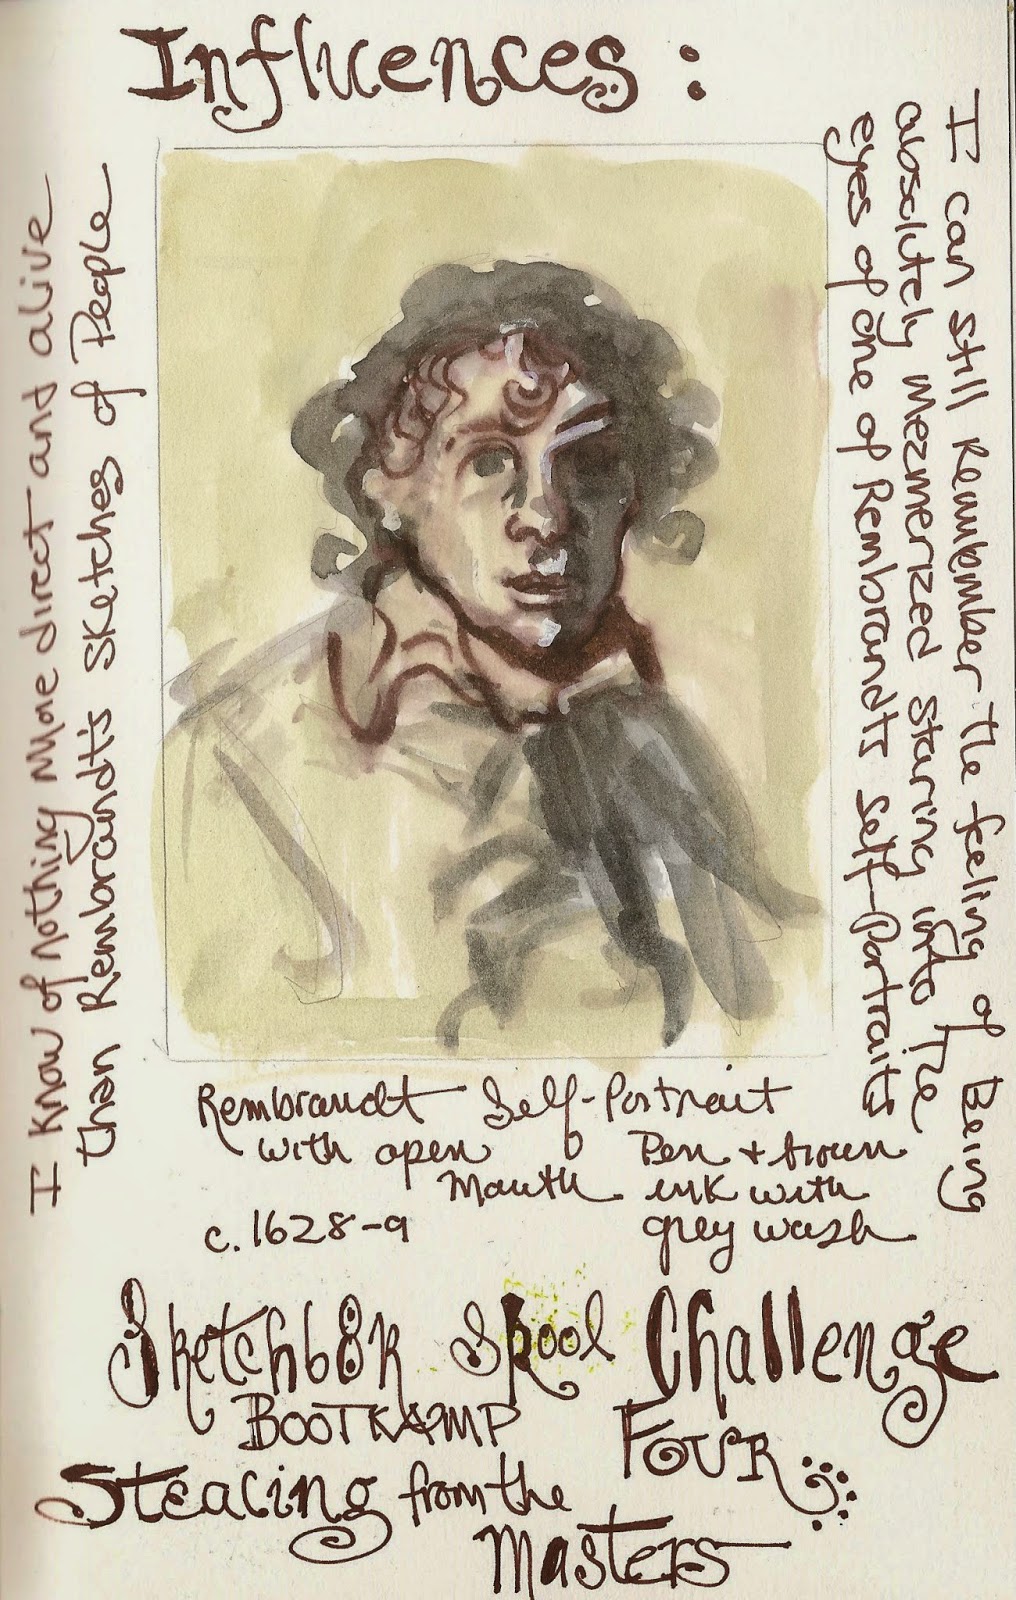 Influences :
I know of nothing more direct and alive
than Rembrandt's sketches of People
I can still Remember the feeling of Being
absolutely mezmerized staring into The
eyes of one of Rembrandts self-Portraits
Rembrandt Self-Portrait
with open Mouth
c. 1628-9
Pen + brown
ink with
grey wash
Sketchb8k Skool Challenge
BOOTKAMP FOUR
Stealing from the
Masters